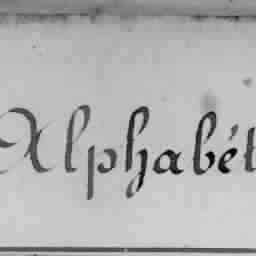 Alphabét